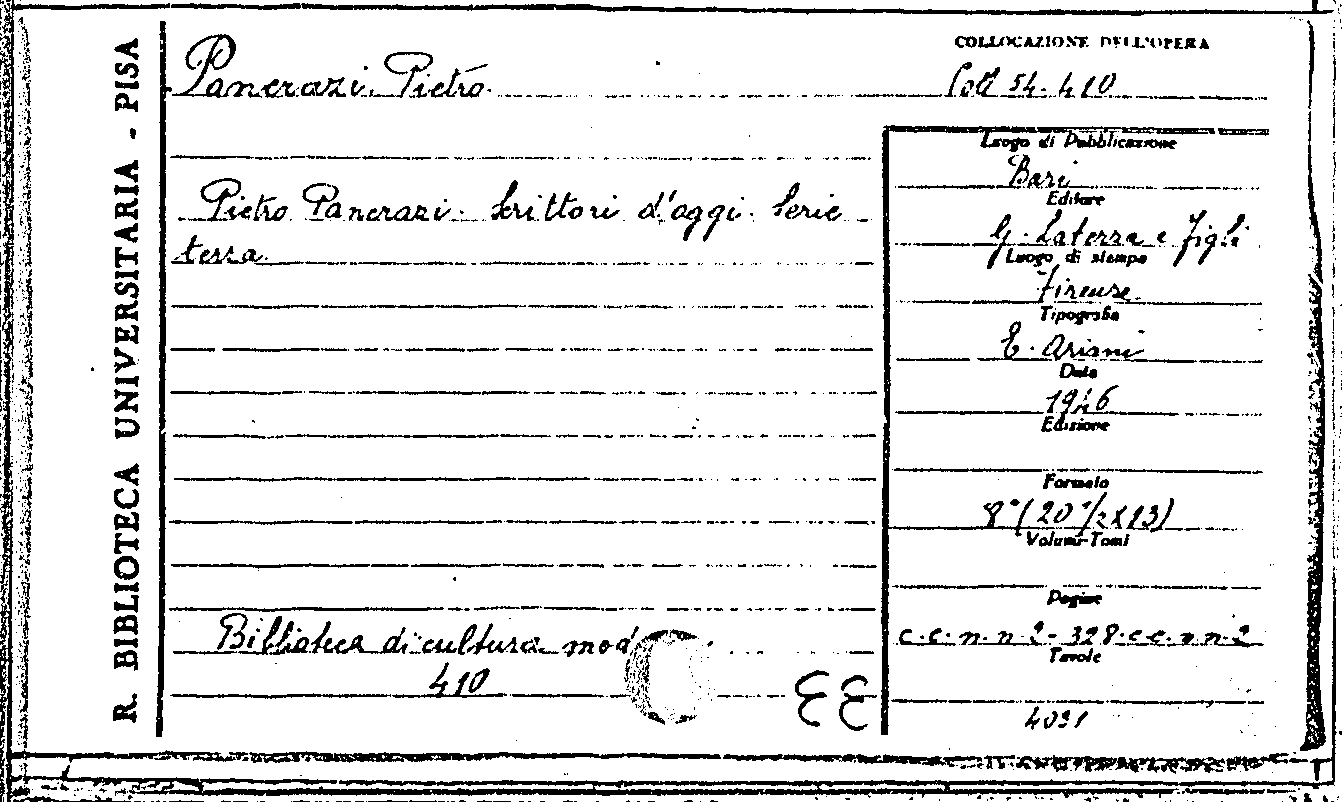 R. BIBLIOTECA UNIVERSITARIA - PISA
Pancrazi. Pietro.
COLLOCAZIONE DELL'OPERA
Coll 54. 410
Pietro Pancrazi. Scrittori d'aggi. Serie
terza.
Luogo di Pubblicazione
Bari
Editore
G. Laterza e figli
Luogo di stampa
Firenze.
Tipografia
E. Ariani
Data
1946
Edizione
Formato
8° (20 1/2 X 13)
Volumi-Tomi
Pagine
c.c.n.n.2-328.c.c.n.n.2
Tavole
4031
Biblioteca di cultura mod
410